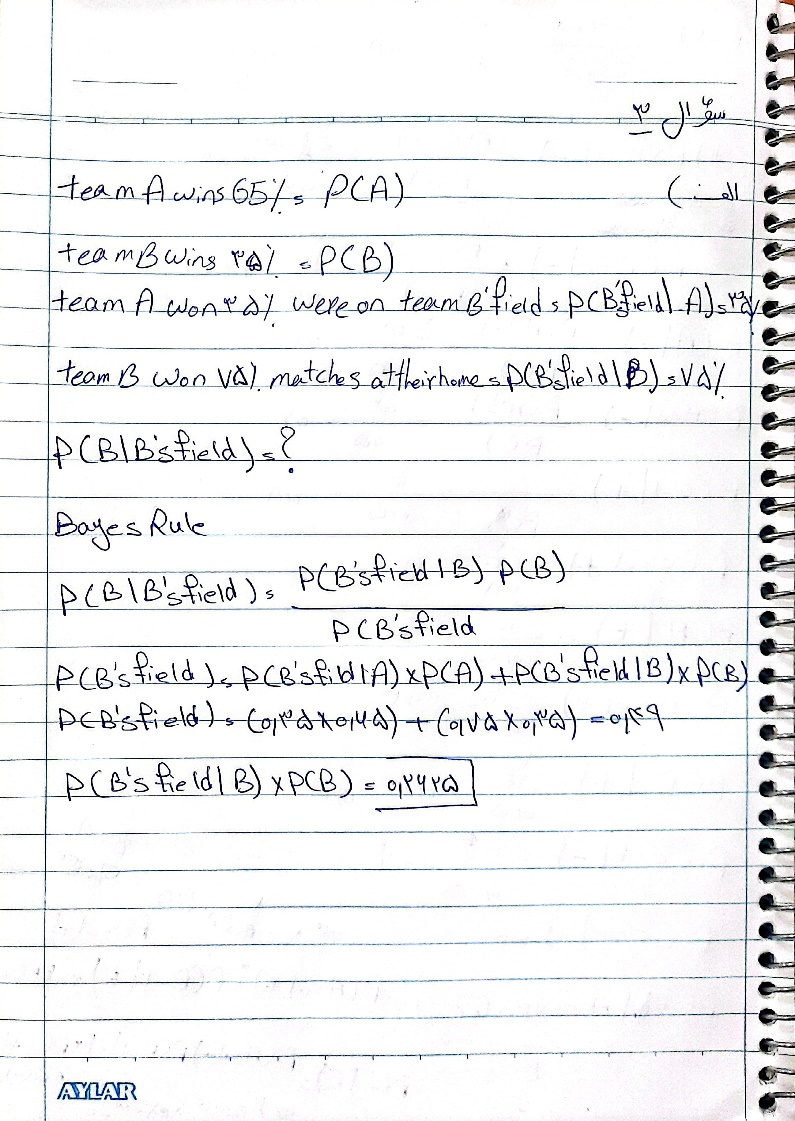 سؤال ۳
الف)
team A wins 65% = P(A)
team B wins ۳۵% = P(B)
team A won ۳۵% were on team B' field = P(B'sfield | A) = ۳۵%
team B won ۷۵% matches at their home = P(B'sfield | B) = ۷۵%
P(B|B'sfield) = ?
Bayes Rule
P(B|B'sfield) = P(B'sfield | B) P(B)
P(B'sfield
P(B'sfield) = P(B'sfild | A) × P(A) + P(B'sfield | B) × P(B)
P(B'sfield) = (۰,۳۵ × ۰,۶۵) + (۰,۷۵ × ۰,۳۵) = ۰,۴۹
P(B's field | B) × P(B) = ۰,۲۶۲۵
AYLAR